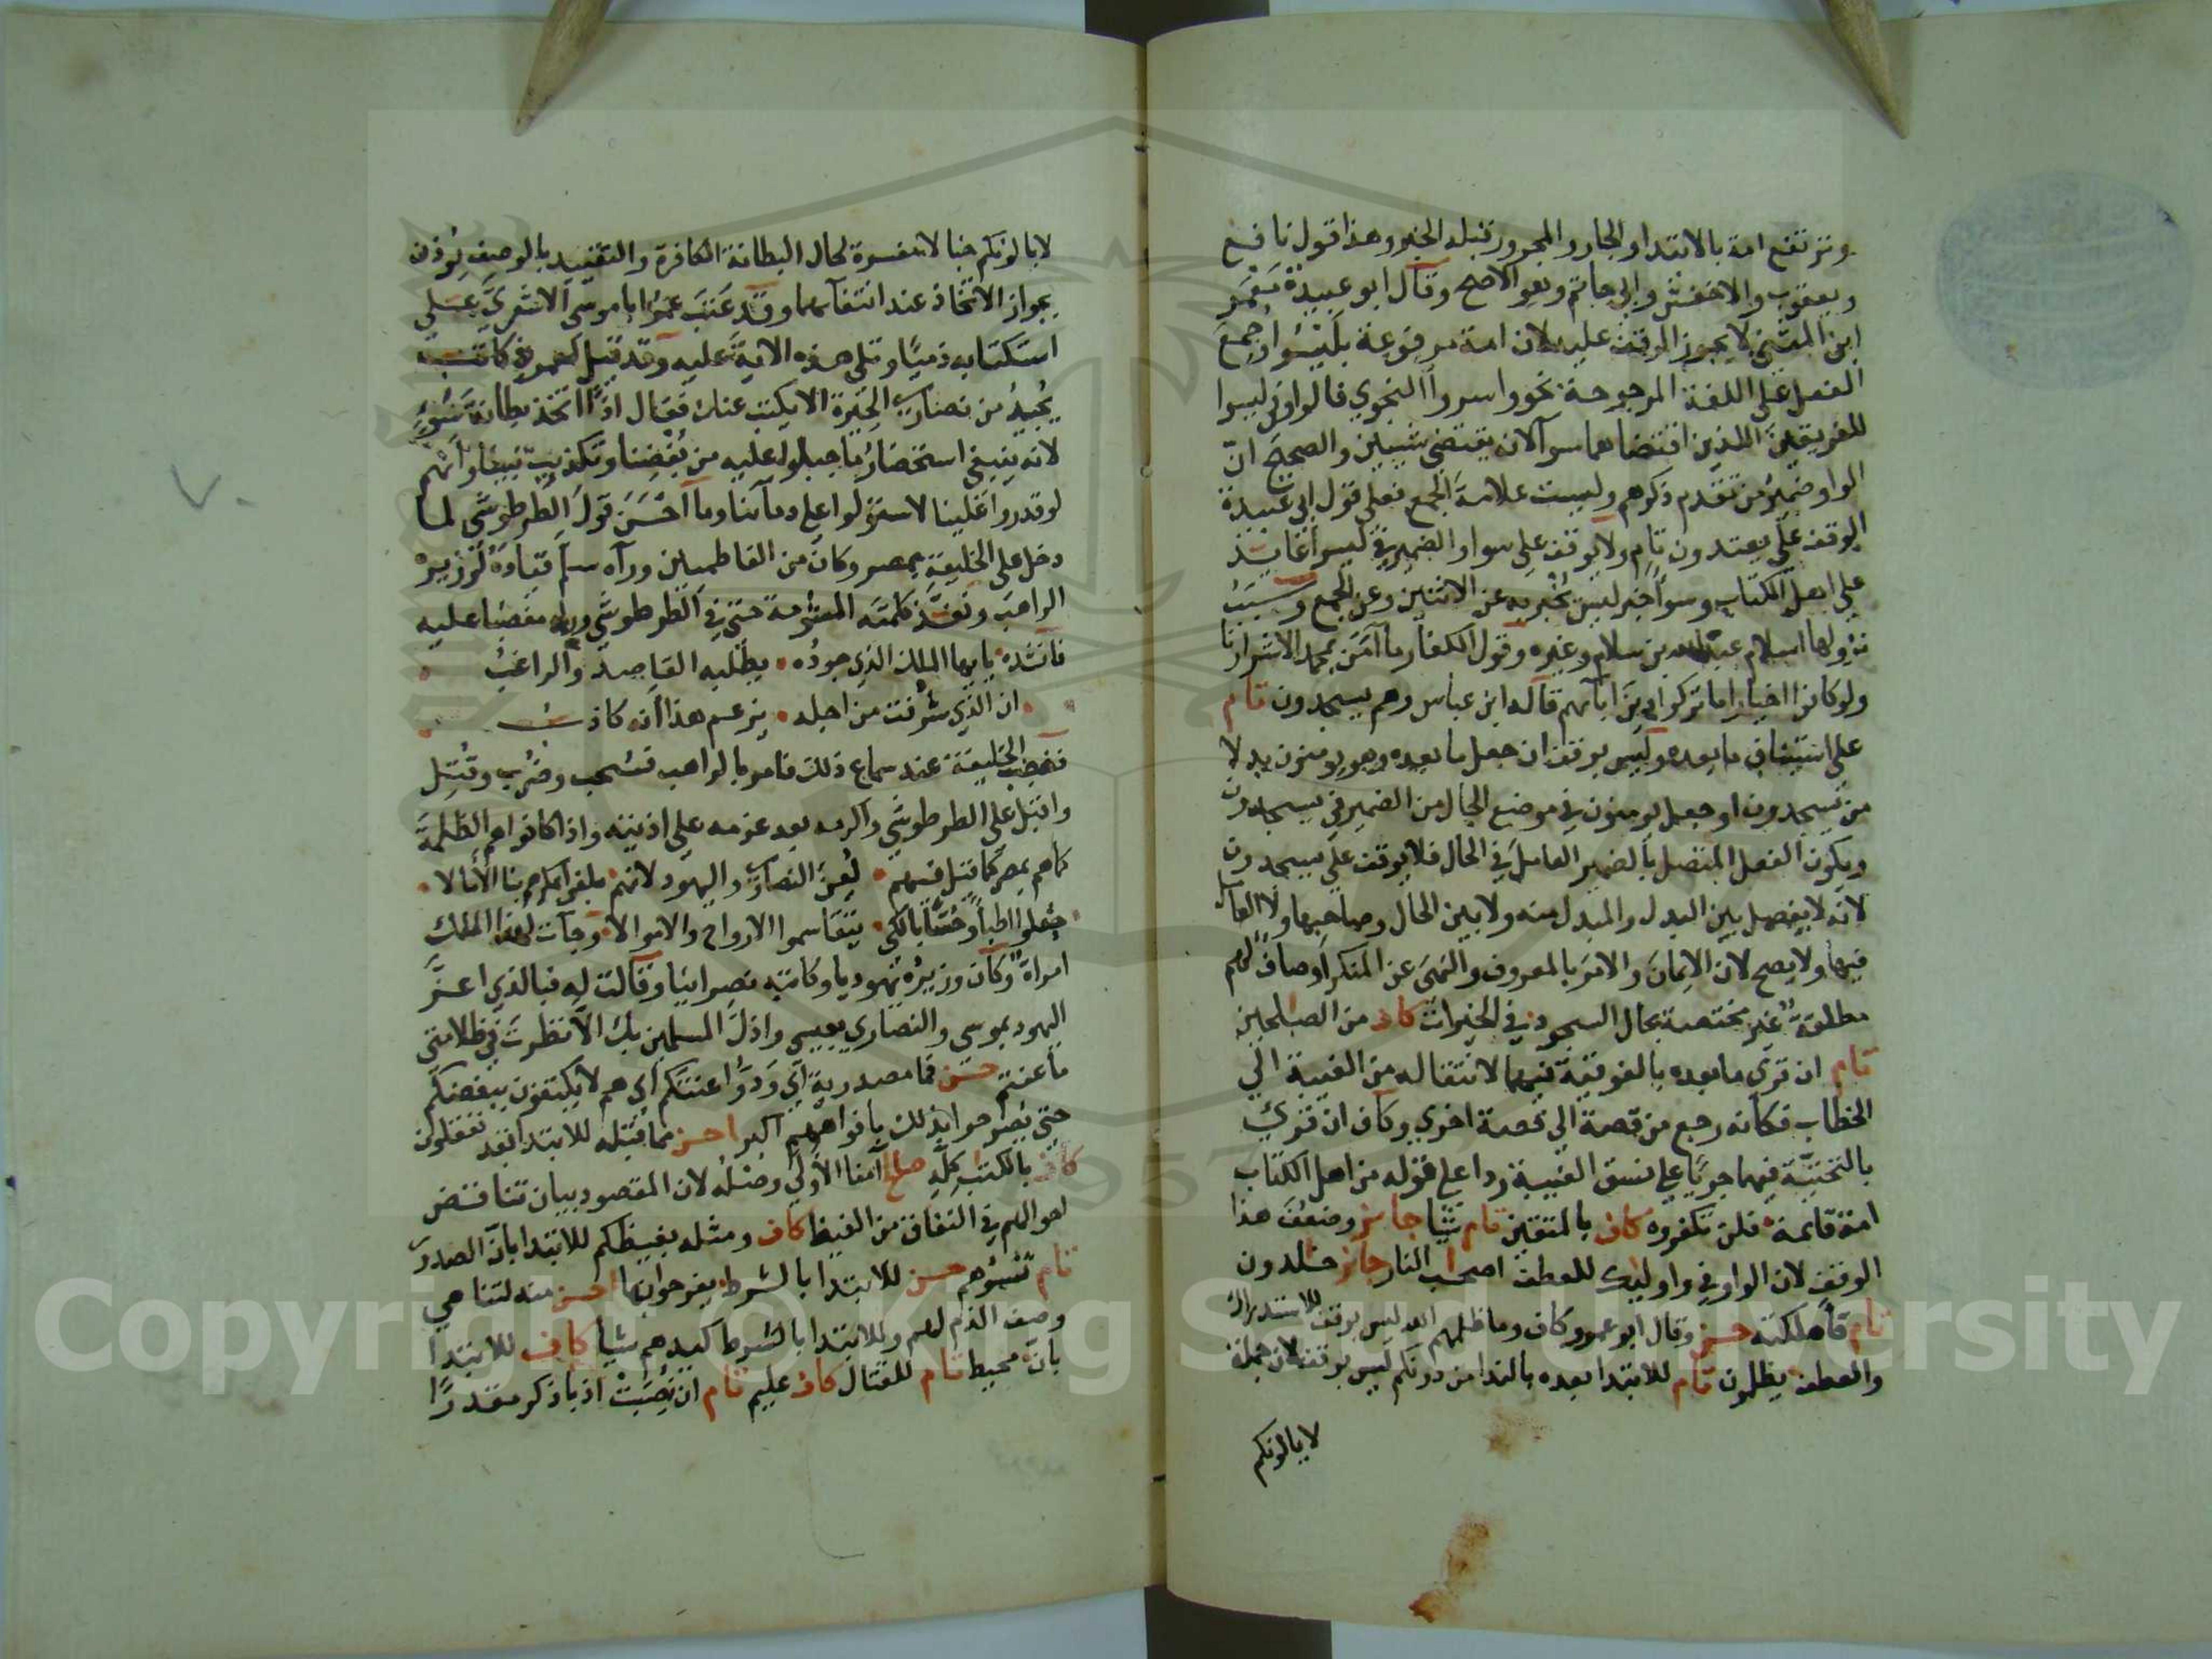 وترتفع امة بالابتدا والجار والمجرور قبله الخبر وهذا قول نافع
ويعقوب والاخفش وابي حاتم وهو الاصح وقال ابو عبيدة معمر
ابن المثنى لا يجوز الوقف عليه لان امة مرفوعة بليسوا وجمع
الفعل على اللغة المرجوحة نحو واسروا النجوي قالوا وفي ليسوا
للفريقين اللذين اقتضاهما سوآ لانه يقتضي شيئين والصحيح ان
الواو ضمير من تقدم ذكرهم وليست علامة الجمع فعلى قول ابي عبيدة
الوقف على يعتدون تام ولا يوقف على سوا والضمير في ليسوا عائد
على اهل الكتاب وسوأ خبر ليس يخبر به عن الاثنين وعن الجمع وسبب
نزولها اسلام عبد الله بن سلام وغيره وقول الكفار ما آمن بمحمد الا شرارنا
ولو كانوا اخيارا ما تركوا دين ابائهم قاله ابن عباس وهم يسجدون تام
على استئناف ما بعده وليس بوقف ان جعل ما بعده وهو يومنون بدلا
من يسجدون او جعل يومنون في موضع الحال من الضمير في يسجدون
ويكون الفعل المتصل بالضمير العامل في الحال فلا يوقف على يسجدون
لانه لا يفصل بين البدل والمبدل منه ولا بين الحال وصاحبها ولا العامل
فيها ولا يصح لان الايمان والامر بالمعروف والنهي عن المنكر اوصاف لهم
مطلقة غير مختصة بحال السجود في الخيرات كاف من الصلحين
تام ان قرئ ما بعده بالفوقية فيهما لانتقاله من الغيبة الي
الخطاب فكأنه رجع من قصة الي قصة اخري وكاف ان قرئ
بالتحتية فيهما جريا على نسق الغيبة ردا على قوله من اهل الكتاب
امة قائمة فلن تكفروه كاف بالمتقين تام شيا جائز وضعف هذا
الوقف لان الواو في واوليك للعطف اصحب النار جائز خلدون
تام فأهلكته حسن وقال ابو عمرو كاف وما ظلمهم الله ليس بوقف للاستدراك
والعطف يظلمون تام للابتدا بعده بالندا من دونكم ليس بوقف لان جملة
لا يالونكم
لا يالونكم خبالا مفسرة لحال البطانة الكافرة والتقييد بالوصف يوذن
بجواز الاتخاذ عند انتفائهما وقد عتب عمر ابا موسى الاشعري على
استكتابه ذميا وتلى هذه الاية عليه وقد قيل لعمر في كاتب
يجيد من نصارى الحيرة الا يكتب عنك فقال اذا اتخذ بطانة سوء
لانه ينبغي استحضار ما جبلوا عليه من بغضنا وتكذيب نبينا وانهم
لو قدروا علينا لاستولوا على دمآئنا وما احسن قول الطرطوشي لما
دخل على الخليفة بمصر وكان من الفاطميين ورآه سلم قياده لوزيره
الراهب ونفذ كلمته المشومة حتى في الطرطوشي ورآه مغضبا عليه
فأنشده يا ايها الملك الذي جوده • يطلبه القاصد والراغب
ان الذي شرفت من اجله • يزعم هذا انه كاذب
فغضب الخليفة عند سماع ذلك فامر بالراهب فسحب وضرب وقتل
واقبل على الطرطوشي واكرمه بعد عزمه على اذيته واذا كانوا هم الظلمة
كما هم بمصر كما قيل فيهم • لعن النصارى واليهود لانهم • بلغوا بمكرهم بنا الأمالا •
جعلوا اطباء وحسابا لكي • يتقاسموا الارواح والاموالا • وجآت لهذا الملك
امرأة وكان وزيره يهوديا وكاتبه نصرانيا وقالت له فبالذي اعز
اليهود بموسى والنصاري بعيسى واذل المسلمين بك الا نظرت في ظلامتي
ما عنتم حسن فما مصدرية اي ودوا عنتكم اي هم لا يكتفون ببغضكم
حتى يصرحوا بذلك بأفواههم اكبر احسن مما قبله للابتدا بقد تعقلون
كاف بالكتب كله صلح آمنا الأولى وصله لان المقصود بيان تناقض
احوالهم في النفاق من الغيظ كاف ومثله بغيظكم للابتدا بأن الصدور
تام تسؤهم حسن للابتدا بالشرط يفرحوا بها احسن منه لتناهي
وصف الذم لهم وللابتدا بالشرط كيدهم شيأ كاف للابتدا
بأن محيط تام للقتال كاف عليم تام ان نصبت اذ باذكر مقدرا